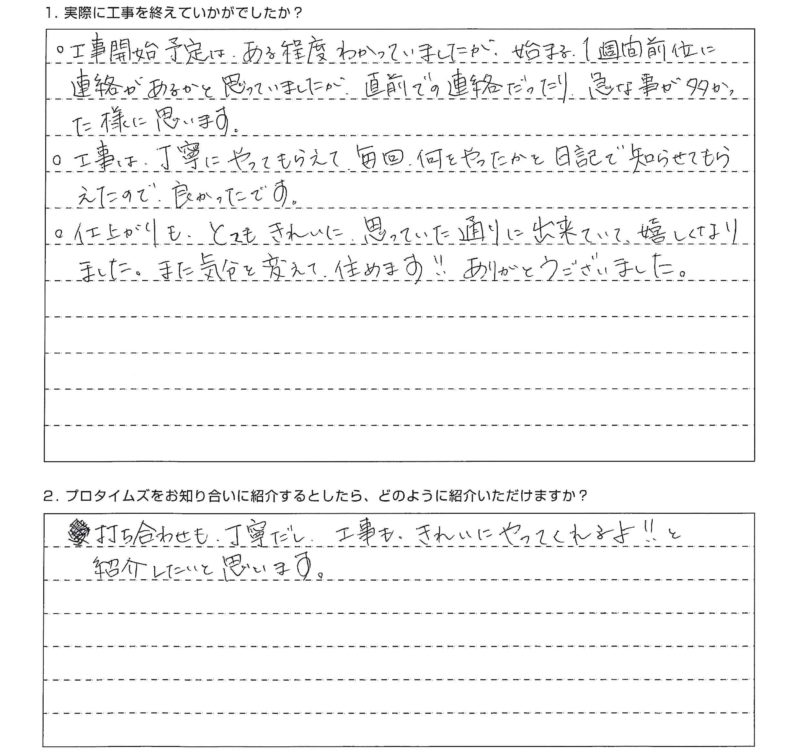 1. 実際に工事を終えていかがでしたか？
○工事開始予定は、ある程度わかっていましたが、始まる、1週間前位に
連絡があるかと思っていましたが、直前での連絡だったり、急な事が多かっ
た様に思います。
○工事は、丁寧にやってもらえて、毎回、何をやったかを日記で知らせてもら
えたので、良かったです。
○仕上がりも、とてもきれいに、思っていた通りに出来ていて、嬉しくなり
ました。また気分を変えて、住めます!! ありがとうございました。
2. プロタイムズをお知り合いに紹介するとしたら、どのように紹介いただけますか？
打ち合わせも、丁寧だし、工事も、きれいにやってくれるよ!!と
紹介したいと思います。